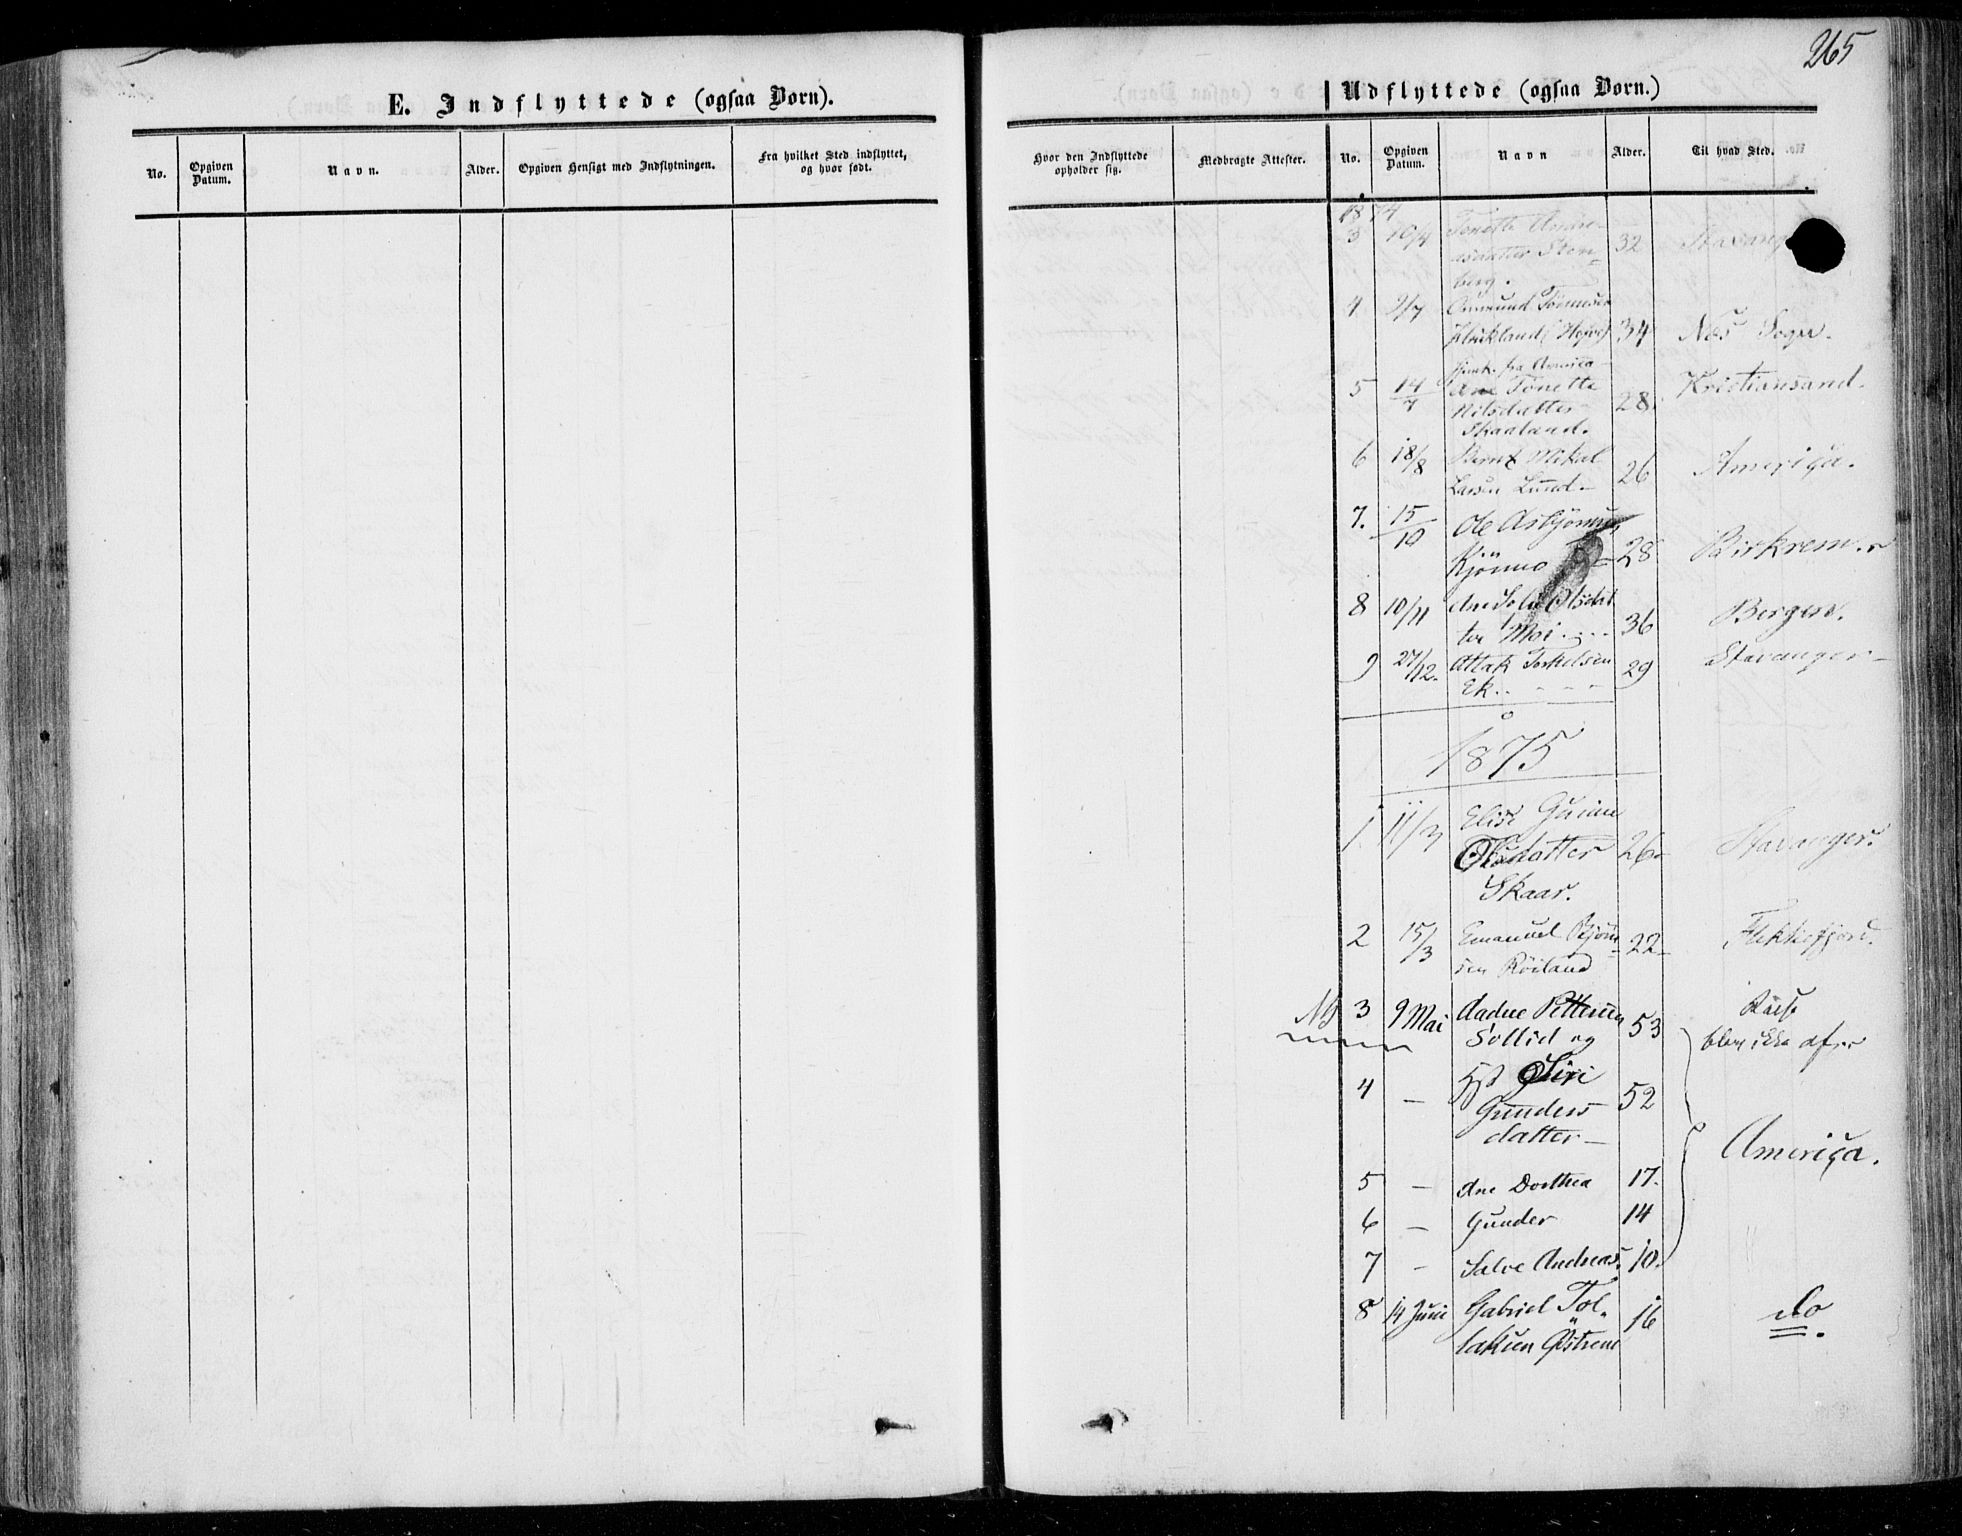 265
E. Indflyttede (ogsaa Børn).
Udflyttede (ogsaa Børn.)
No. Opgiven Datum. Navn. Alder. Opgiven Hensigt med Indflytningen. Fra hvilket Sted indflyttet, og hvor født.
Hvor den Indflyttede opholder sig. Medbragte Attester. No. Opgiven Datum. Navn Alder. Til hvad Sted.
1874
3 10/4 Tonette Andre-
asdatter Sten- 32
berg.
4. 9/7 Aanund Tønnesen
34 Næs Sogn.
fra America
5 14/7 Ane Tonette Kristiansand.
Nilsdatter 28.
Skaaland.
6 18/8 Bernt Mikal Ameriça.
Larsen Lund 26
7. 15/10 Ole Asbjørnsen
28 Birkrem.
8 10/11 Olsdat
ter Moi 36 Bergen.
9 27/12. Attak Torkelsen 29 Stavanger
Ek.
1875
1. 11/3 Elise
Olsdatter 26 Stavanger.
Skaar.
2 15/3 Emanuel Bjørn- 22 Flekkefjord.
sen Röiland
NB 3 9 Mai Aadne Pettersen 53 Reise
Sollid og blev ikke af
4 - Hst Siri 52
Gunders
datter Ameriça.
5 - Ane Dorthea 17.
6 - Gunder 14
7 - Salve Andreas. 10.
8 14 Juni Gabriel Tol- 16 do
laksen Østrem